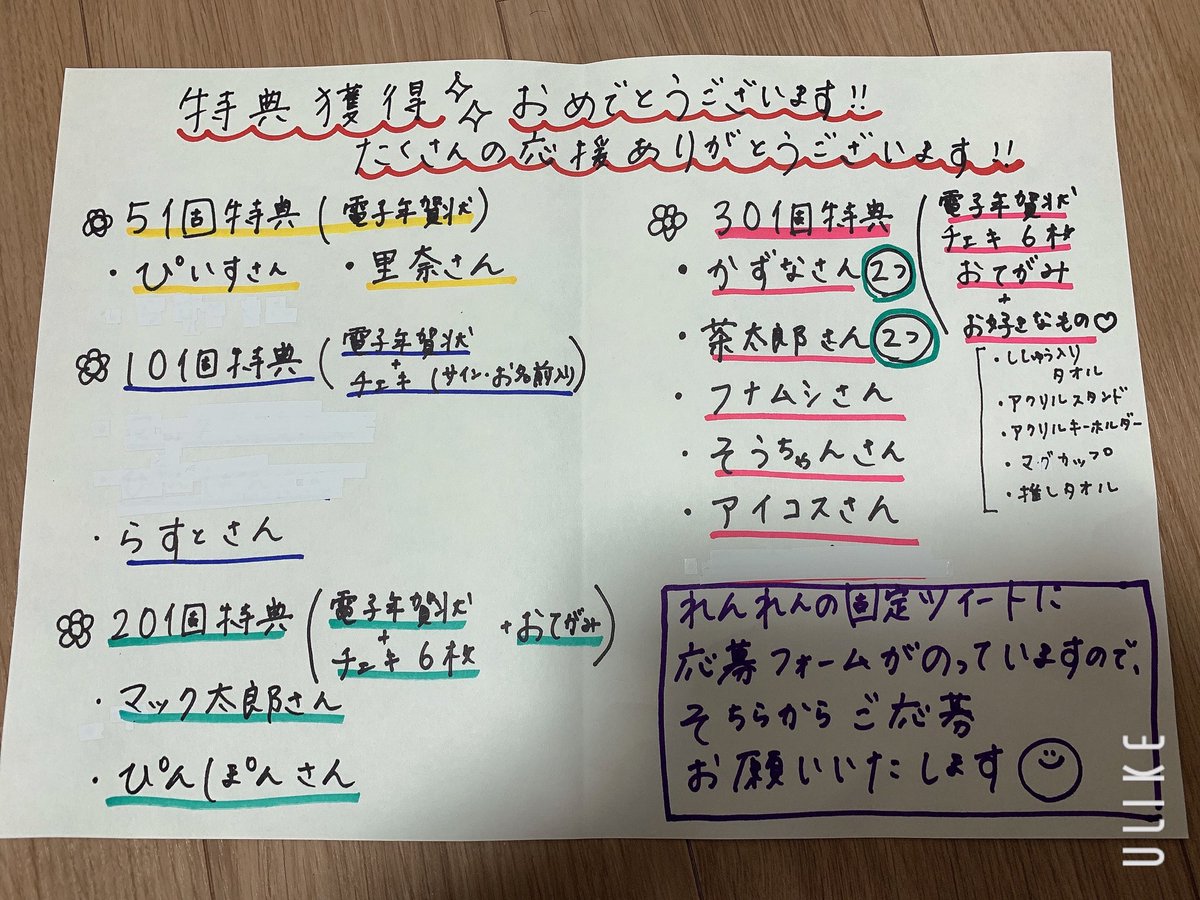 特典獲得 おめでとうございます!!
たくさんの応援ありがとうございます!!
5個特典(電子年賀状)
・ぴいすさん ・里奈さん
10個特典(電子年賀状
+
チェキ(サイン・お名前入り))
・らすとさん
20個特典(電子年賀状
+
チェキ6枚 +おてがみ)
・マック太郎さん
・ぴんぽんさん
30個特典
・かずなさん 2つ
・茶太郎さん 2つ
・フナムシさん
・そうちゃんさん
・アイコスさん
電子年賀状
チェキ6枚
おてがみ
+
お好きなもの♡
・ししゅう入り
タオル
・アクリルスタンド
・アクリルキーホルダー
・マグカップ
・推しタオル
れんれんの固定ツイートに
応募フォームがのっていますので、
そちらからご応募
お願いいたします
ULIKE